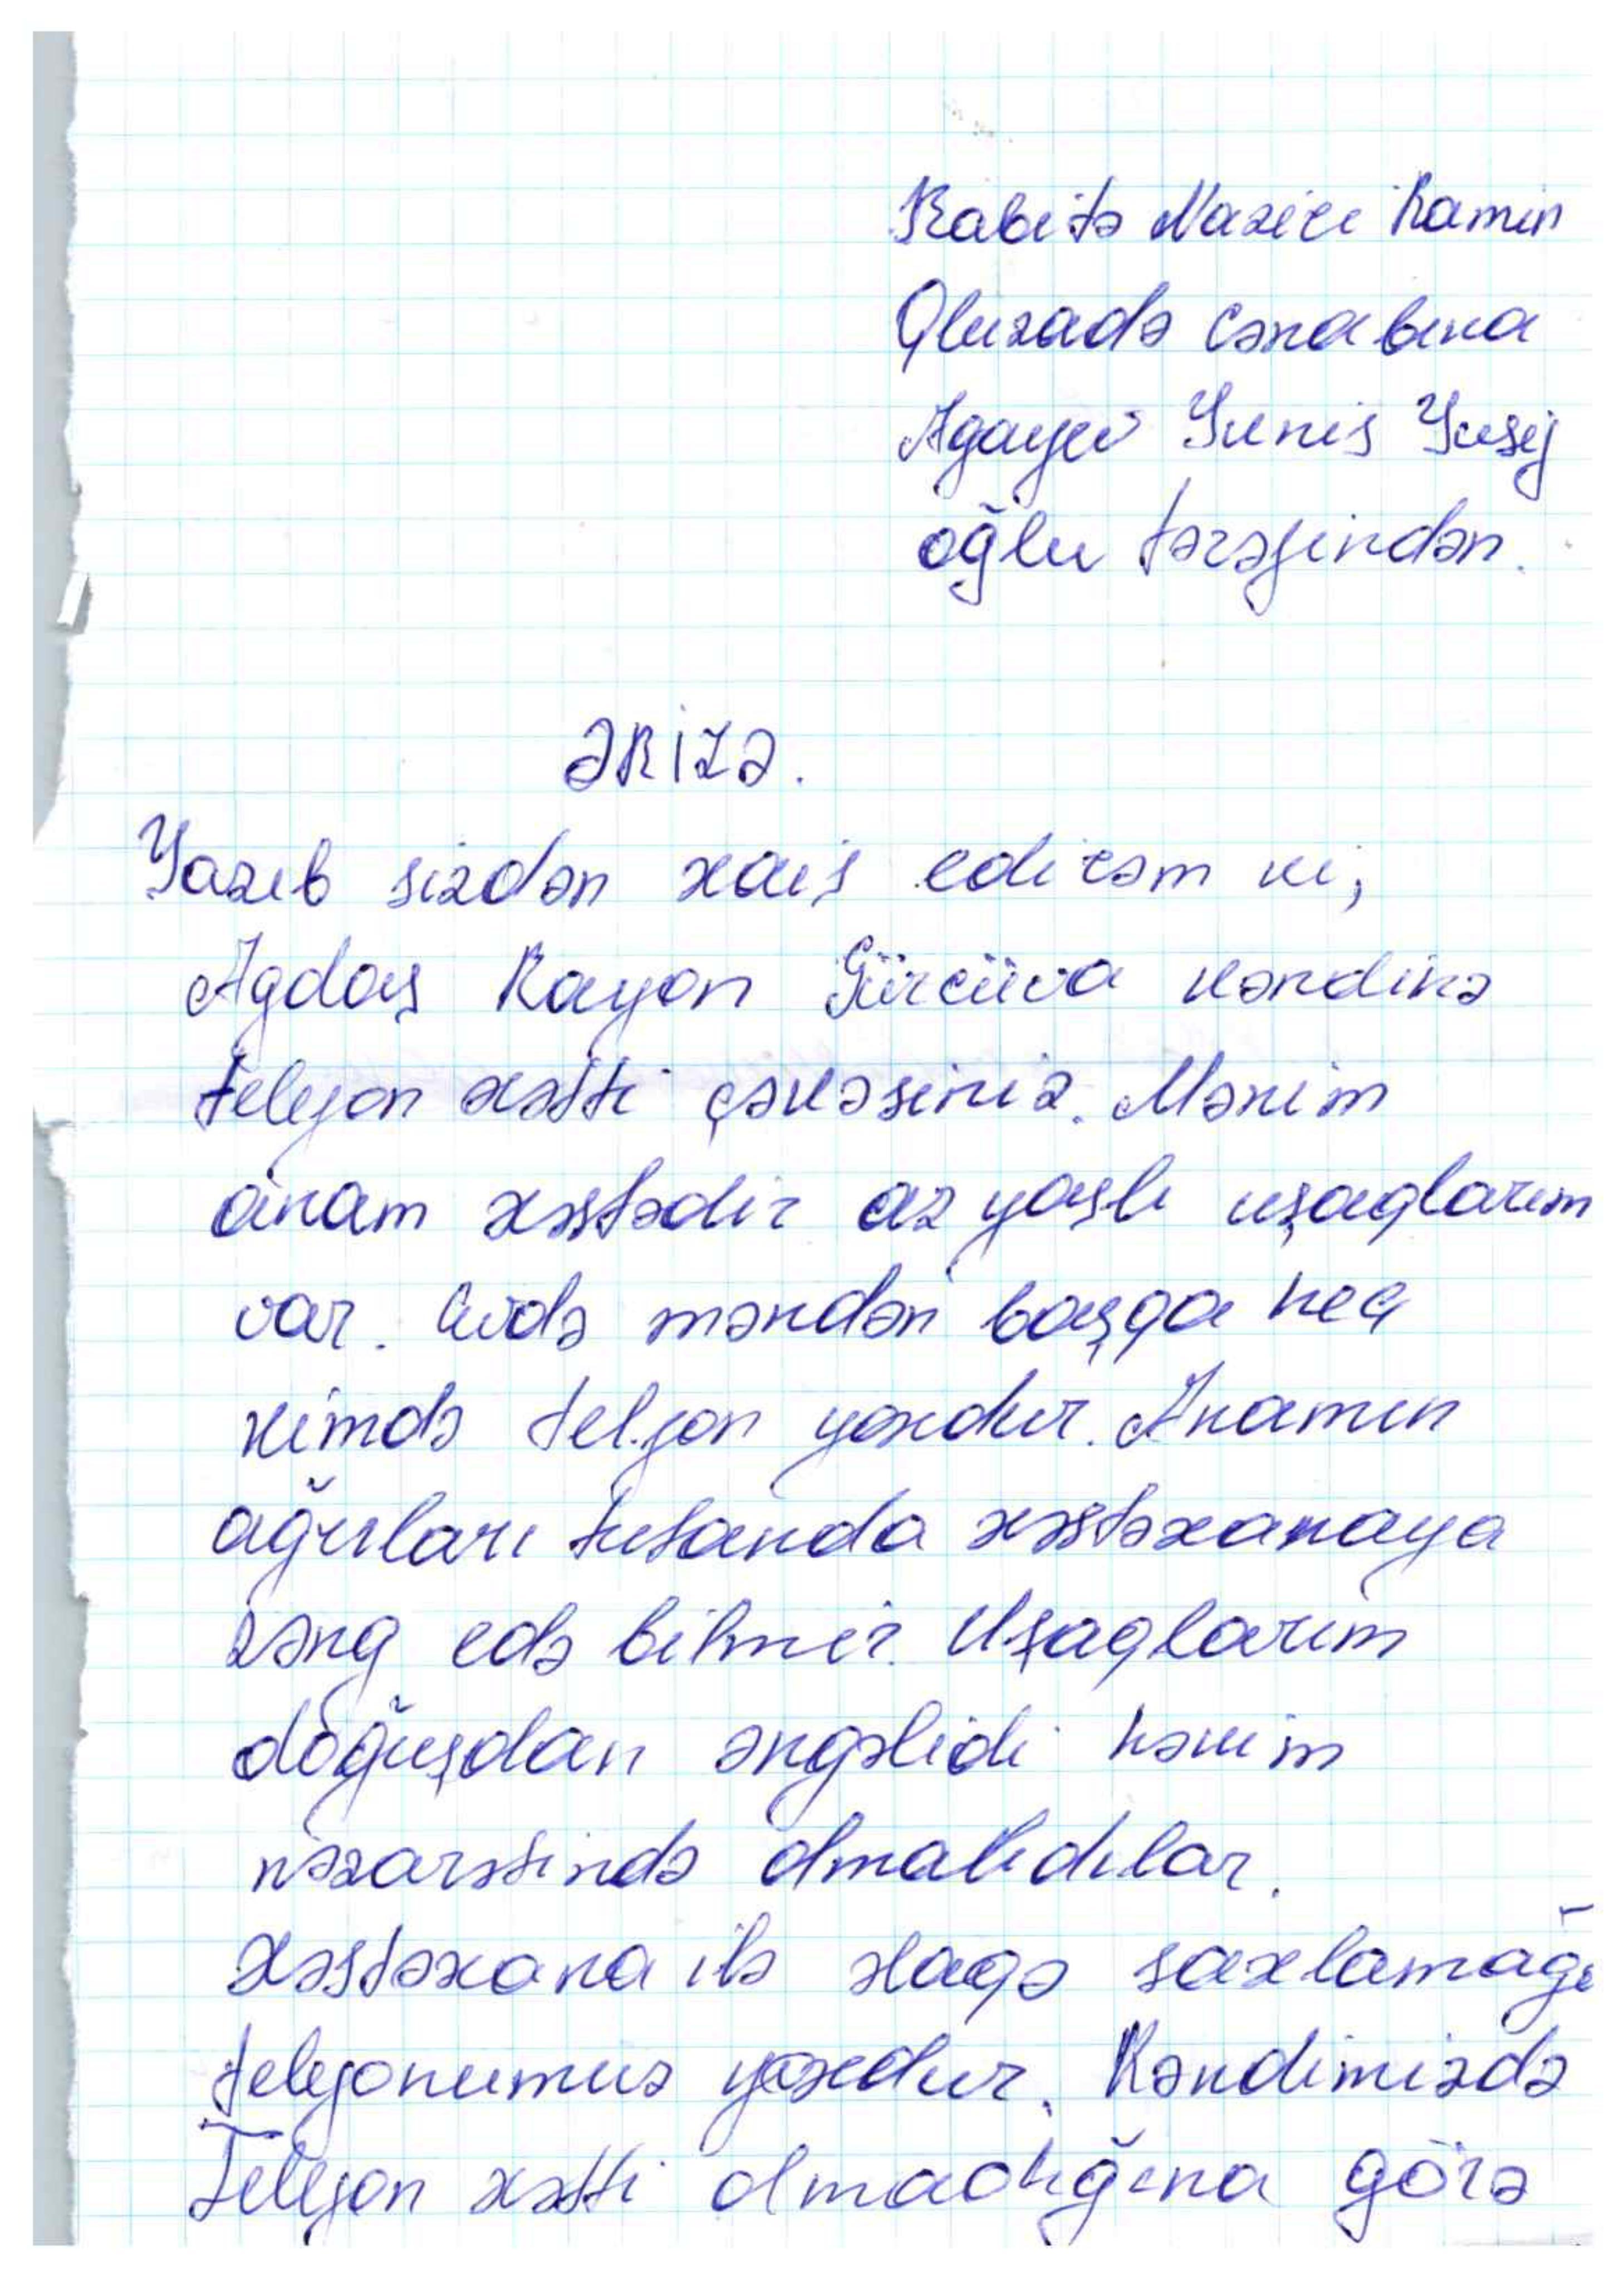 Rabitə Naziri Ramin
Quluzadə cənabına
Agayev Yunis Yusif
oğlu tərəfindən.
ƏRİZƏ.
Yazıb sizdən xaiş edirəm ki,
Agdaş Rayon Gürcüva kəndinə
telefon xətti çəkəsiniz. Mənim
anam xəstədir az yaşlı uşaqlarım
var. Evdə məndən başqa heç
kimdə telfon yoxdur. Anamın
ağrıları tutanda xəstəxanaya
zəng edə bilmir. Uşaqlarım
doğuşdan əngəlidi həkim
nəzarətində olmalıdılar.
Xəstəxana ilə əlaqə saxlamağa
telefonumuz yoxdur. Kəndimizdə
Telefon xətti olmadığına görə